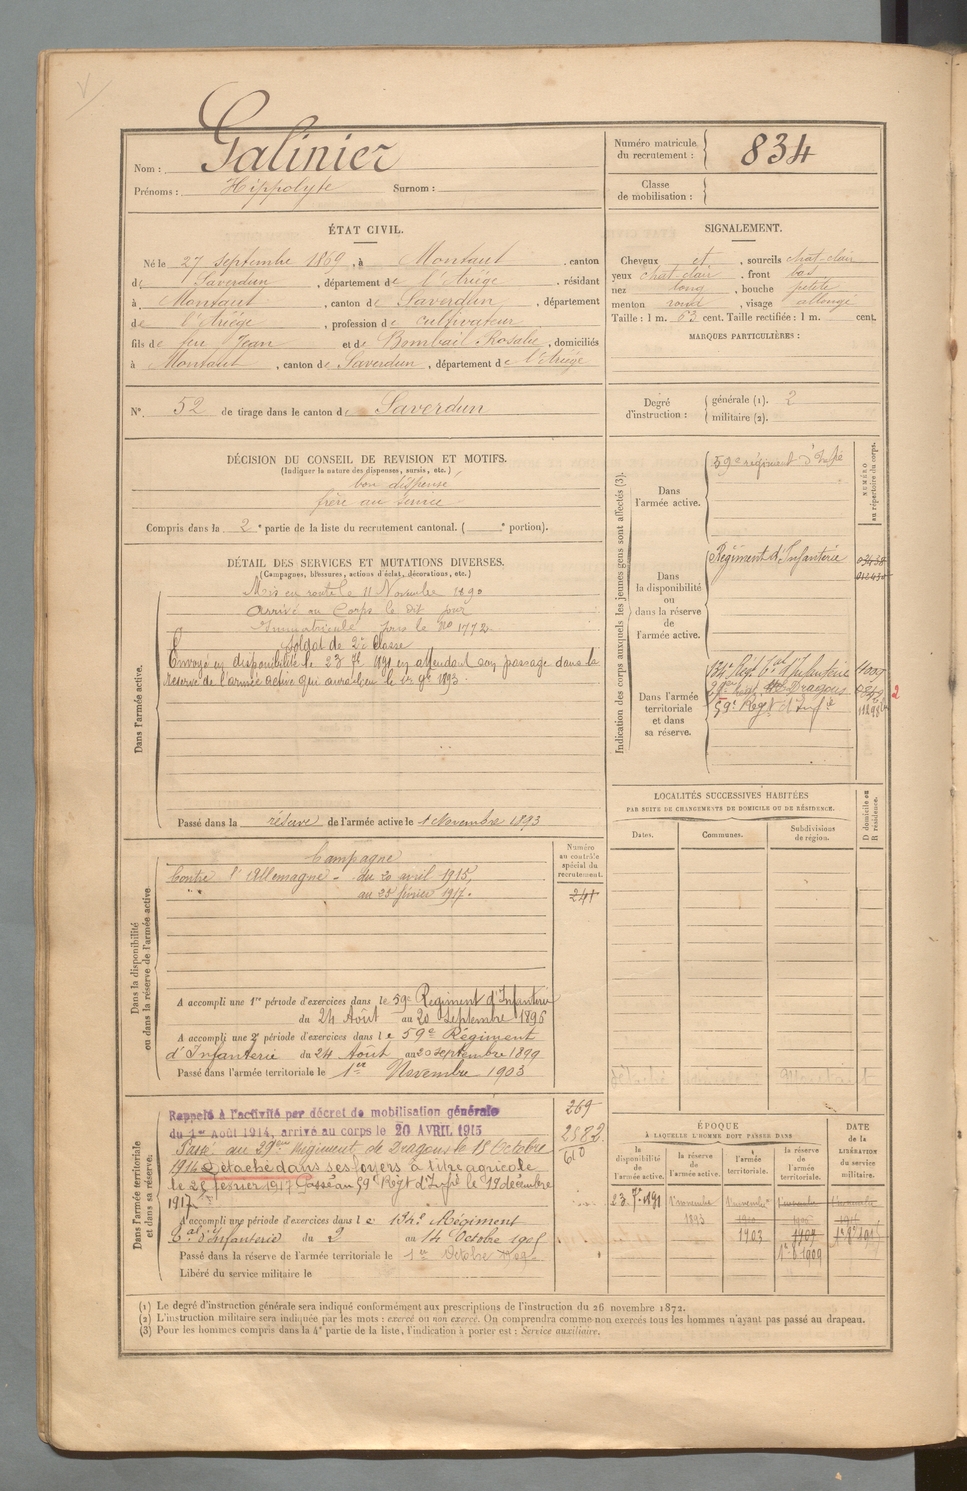 Nom : Galinier
Prénoms : Hippolyte Surnom :
Numéro matricule du recrutement : 834
Classe de mobilisation :
ÉTAT CIVIL.
Né le 27 Septembre 1869, à Montaut, canton
de Saverdun, département de l'Ariège, résidant
à Montaut, canton de Saverdun, département
de l'Ariège, profession de cultivateur
fils de feu Jean et de Bombail Rosalie, domiciliés
à Montaut, canton de Saverdun, département de l'Ariège
SIGNALEMENT.
Cheveux et, sourcils chat. clair
yeux chat. clair, front bas
nez long, bouche petite
menton rond, visage allongé
Taille : 1 m. 63 cent. Taille rectifiée : 1 m. cent.
MARQUES PARTICULIÈRES :
N° 52 de tirage dans le canton de Saverdun
Degré d'instruction : générale (1). 2
militaire (2).
DÉCISION DU CONSEIL DE REVISION ET MOTIFS.
(Indiquer la nature des dispenses, sursis, etc.)
bon dispensé
frère au service
Compris dans la 2e partie de la liste du recrutement cantonal. ( e portion).
DÉTAIL DES SERVICES ET MUTATIONS DIVERSES.
(Campagnes, blessures, actions d'éclat, décorations, etc.)
Dans l'armée active.
Mis en route le 11 Novembre 1890
arrivé au Corps le dit jour
Immatriculé sous le No 1772
Soldat de 2e Classe
Envoyé en disponibilité le 23 7bre 1891 en attendant son passage dans la
réserve de l'armée active qui aura lieu le 1er 9bre 1893.
Passé dans la réserve de l'armée active le 1 Novembre 1893
Indication des corps auxquels les jeunes gens sont affectés (3).
NUMÉRO au répertoire du corps.
Dans l'armée active.
59e régiment d'Infie
Dans la disponibilité ou dans la réserve de l'armée active.
Régiment d'Infanterie
Dans l'armée territoriale et dans sa réserve.
134e Regt tal d'Infanterie
29e Regt de Dragons
59e Regt d'Infie
2
LOCALITÉS SUCCESSIVES HABITÉES
PAR SUITE DE CHANGEMENTS DE DOMICILE OU DE RÉSIDENCE.
Dates. Communes. Subdivisions de région. D domicile ou R résidence.
Dans la disponibilité ou dans la réserve de l'armée active
Numéro au contrôle spécial du recrutement.
241
Campagne
Contre l'Allemagne - du 20 avril 1915,
au 25 février 1917.
A accompli une 1re période d'exercices dans le 59e Régiment d'Infanterie
du 24 Août au 20 Septembre 1896
A accompli une 2e période d'exercices dans le 59e Régiment
d'Infanterie du 24 Août au 20 septembre 1899
Passé dans l'armée territoriale le 1er Novembre 1903
Dans l'armée territoriale et dans sa réserve.
269
2882
610
Rappelé à l'activité par décret de mobilisation générale
du 1er Août 1914, arrivé au corps le 20 AVRIL 1915
Passé au 29eme Régiment de Dragons le 18 Octobre
1916 Détaché dans ses foyers à titre agricole
le 25 février 1917 Passé au 59e Regt d'Infie le 19 décembre
1917
A accompli une période d'exercices dans le 134e Régiment
tal d'Infanterie du 2 au 14 Octobre 1905
Passé dans la réserve de l'armée territoriale le 1er Octobre 1909
Libéré du service militaire le
ÉPOQUE
À LAQUELLE L'HOMME DOIT PASSER DANS
la disponibilité de l'armée active.
la réserve de l'armée active.
l'armée territoriale.
la réserve de l'armée territoriale.
DATE de la LIBÉRATION du service militaire.
23 7bre 1891
1 novembre 1893
1 novembre
1903
1909
1er 8 1909
(1) Le degré d'instruction générale sera indiqué conformément aux prescriptions de l'instruction du 26 novembre 1872.
(2) L'instruction militaire sera indiquée par les mots : exercé ou non exercé. On comprendra comme non exercés tous les hommes n'ayant pas passé au drapeau.
(3) Pour les hommes compris dans la 4e partie de la liste, l'indication à porter est : Service auxiliaire.